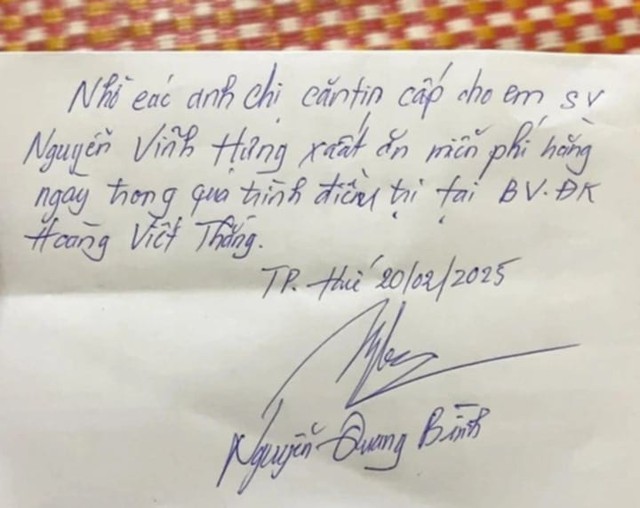 Nhờ các anh chị căntin cấp cho em SV
Nguyễn Vinh Hưng xuất ăn miễn phí hằng
ngày trong quá trình điều trị tại BV.ĐK
Hoàng Viết Thắng.
TP. Huế 20/02/2025
Nguyễn Quang Bình